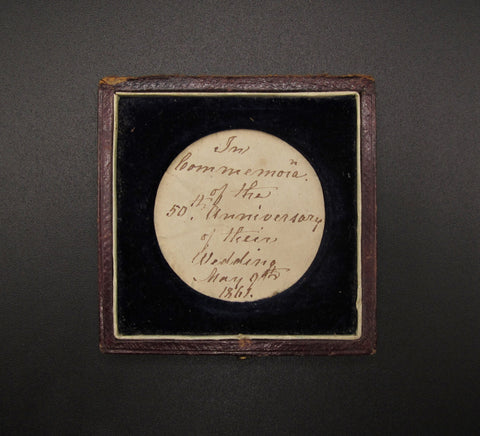 In
Commemoiã.
of the
50th. Anniversary
of their
Wedding
May 9th
1861.